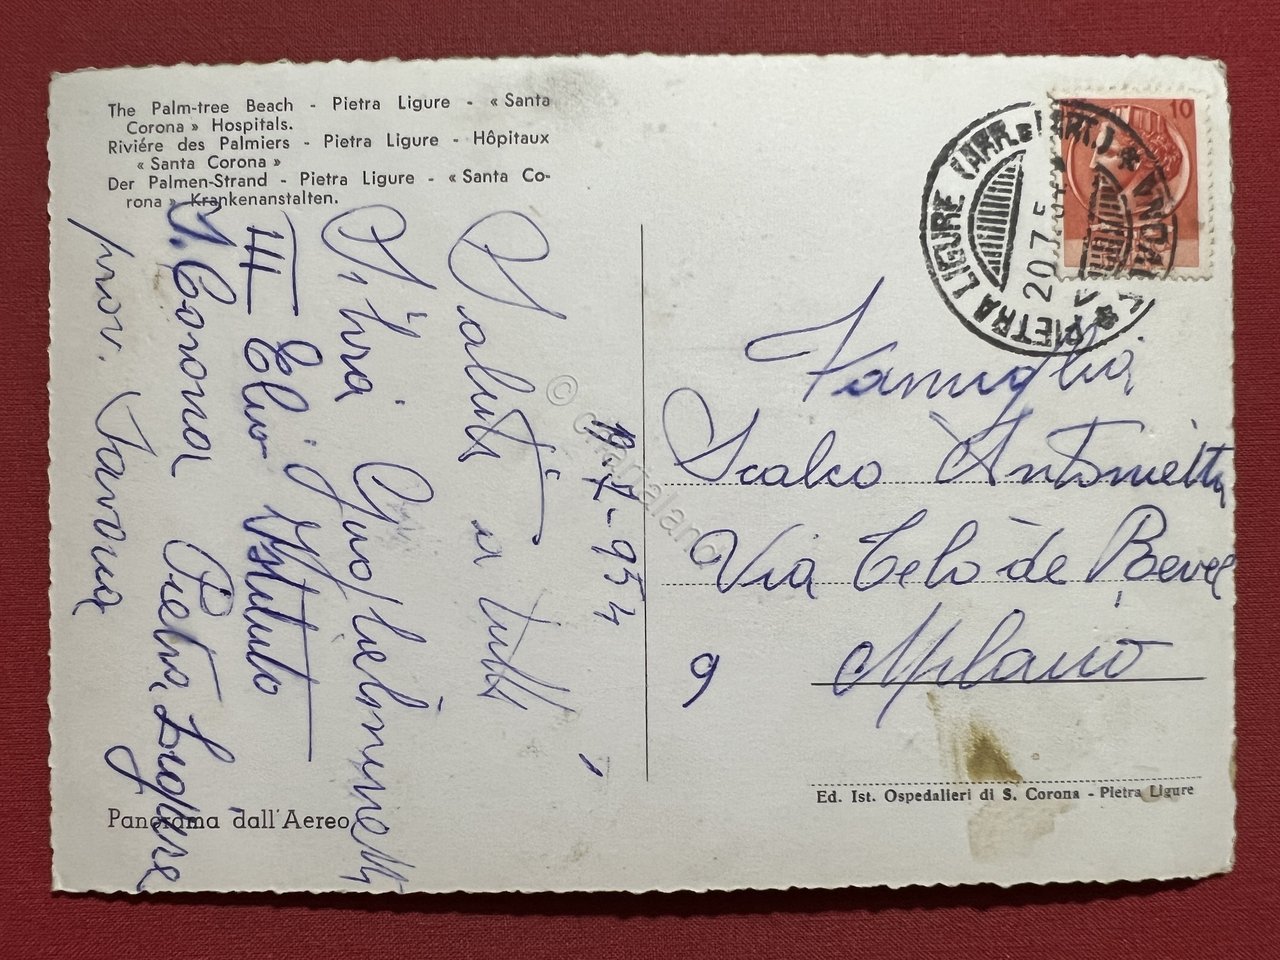 The Palm-tree Beach - Pietra Ligure - « Santa
Corona » Hospitals.
Riviére des Palmiers - Pietra Ligure - Hôpitaux
« Santa Corona »
Der Palmen-Strand - Pietra Ligure - « Santa Co-
rona » Krankenanstalten.
10
PIETRA LIGURE (ARR. E PART.) * SAVONA *
20.7.54
-7-954
Saluti a tutti
Silvia Guglielminetti
III Elio Istituto
S. Corona Pietra Ligure
prov. Savona
Famiglia
Scalco Antonietta
Via Celo de Bevel
9 Milano
Panorama dall'Aereo
Ed. Ist. Ospedalieri di S. Corona - Pietra Ligure
© cartalano